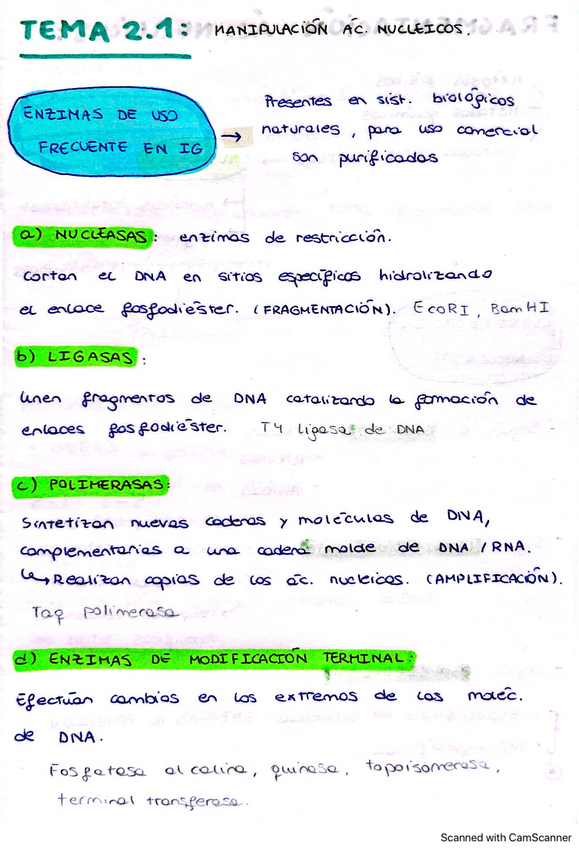 TEMA 2.1: MANIPULACIÓN ÁC. NUCLEICOS.
ENZIMAS DE USO
FRECUENTE EN IG
→ Presentes en sist. biológicos
naturales, para uso comercial
son purificados
a) NUCLEASAS: enzimas de restricción.
Cortan el DNA en sitios específicos hidrolizando
el enlace fosfodiéster. (FRAGMENTACIÓN). EcoRI, BamHI
b) LIGASAS:
Unen fragmentos de DNA catalizando la formación de
enlaces fosfodiéster. T4 ligasa de DNA
c) POLIMERASAS:
Sintetizan nuevas cadenas y moléculas de DNA,
complementarias a una cadena molde de DNA / RNA.
↳ Realizan copias de los ác. nucleicos. (AMPLIFICACIÓN).
Taq polimerasa
d) ENZIMAS DE MODIFICACIÓN TERMINAL:
Efectúan cambios en los extremos de las moléc.
de DNA.
Fosfatasa alcalina, quinasa, topoisomerasa,
terminal transferasa.
Scanned with CamScanner